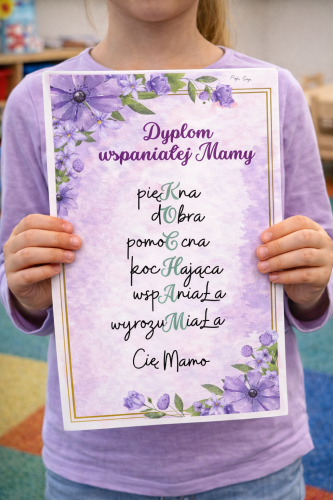 Dyplom
wspaniałej Mamy
pięKna
dObra
pomoCna
kocHająca
wspAniaŁa
wyrozuMiaŁa
Cię Mamo